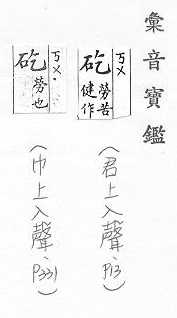 彙音寶鑑
ㄎㄨ
矻
勞苦
健作
(君上入聲、P13)
ㄎㄨ·
矻勞也
(巾上入聲、P331)